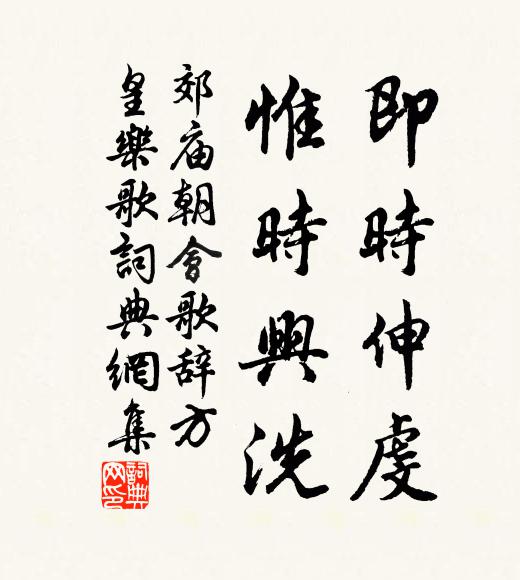 即時伸虔
惟時興洗
郊庙朝會歌辞方
皇樂歌詞典網集
詞典网印